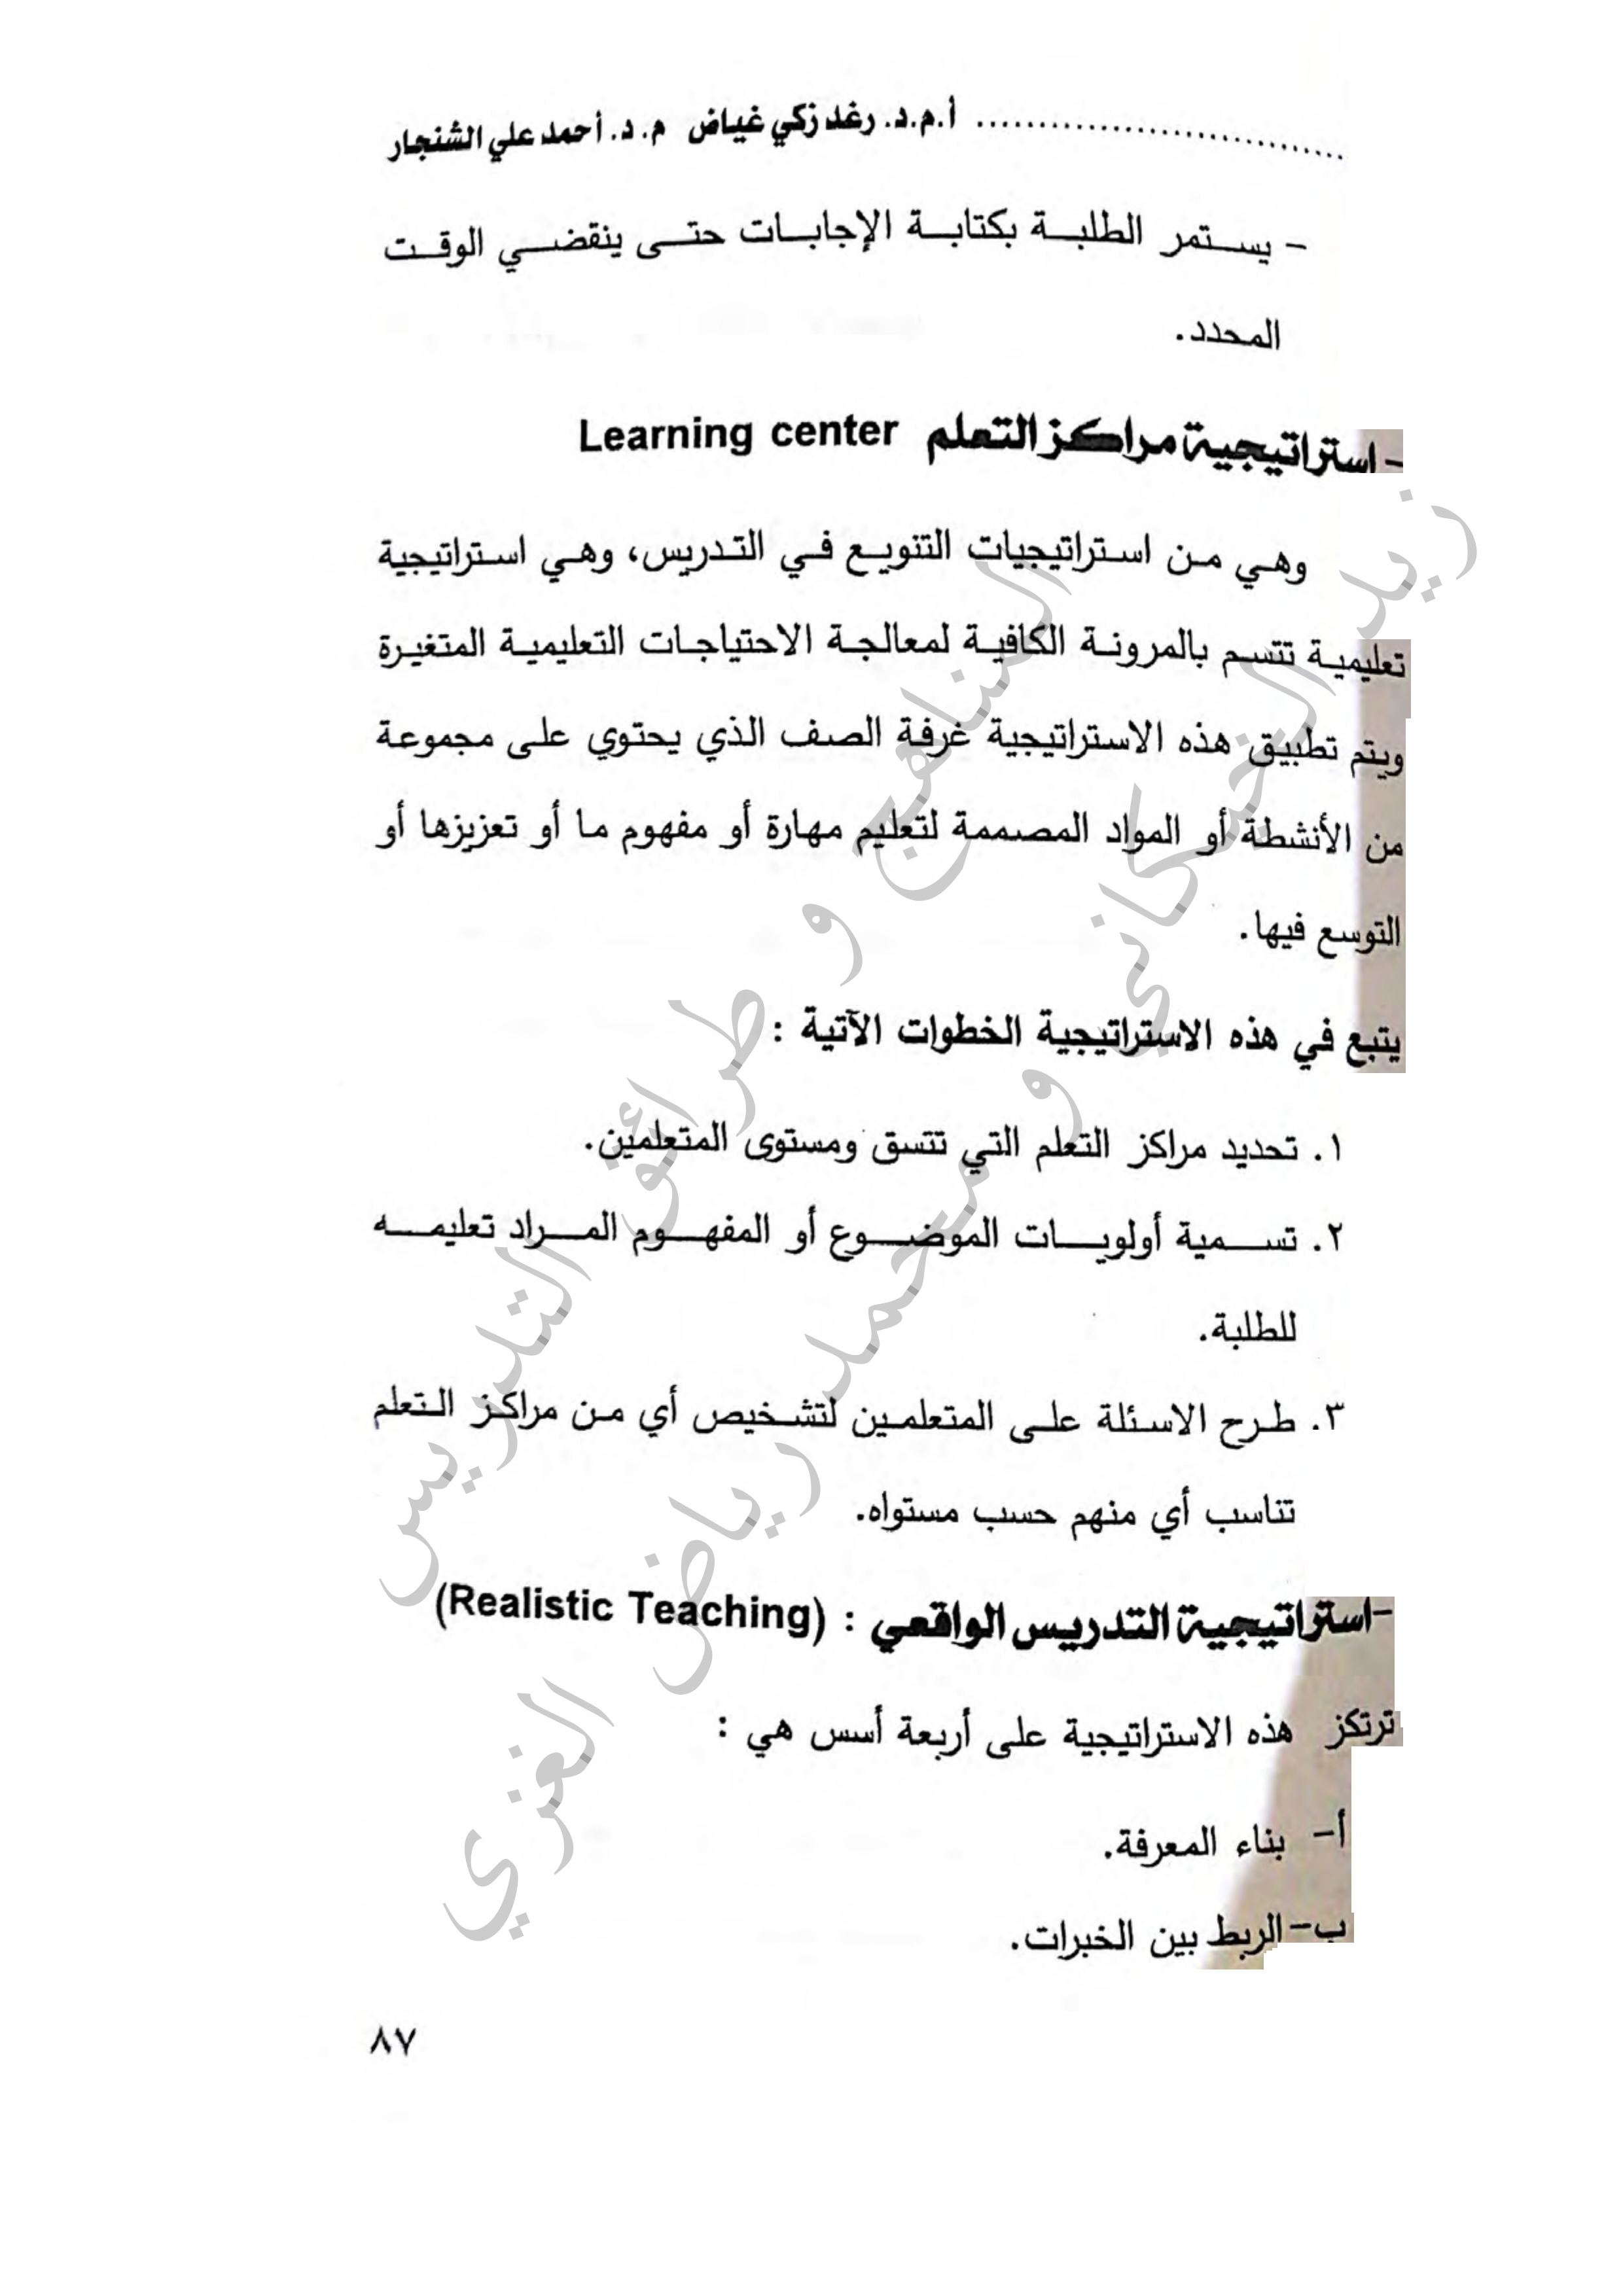 ................................ أ.م.د. رغد زكي غياض م. د. أحمد علي الشنجار
- يستمر الطلبة بكتابة الإجابات حتى ينقضي الوقت
المحدد.
- استراتيجية مراكز التعلم Learning center
وهي من استراتيجيات التنويع في التدريس، وهي استراتيجية
تعليمية تتسم بالمرونة الكافية لمعالجة الاحتياجات التعليمية المتغيرة
ويتم تطبيق هذه الاستراتيجية غرفة الصف الذي يحتوي على مجموعة
من الأنشطة أو المواد المصممة لتعليم مهارة أو مفهوم ما أو تعزيزها أو
التوسع فيها.
يتبع في هذه الاستراتيجية الخطوات الآتية :
١. تحديد مراكز التعلم التي تتسق ومستوى المتعلمين.
٢. تسمية أولويات الموضوع أو المفهوم المراد تعليمه
للطلبة.
٣. طرح الاسئلة على المتعلمين لتشخيص أي من مراكز التعلم
تناسب أي منهم حسب مستواه.
-استراتيجية التدريس الواقعي : (Realistic Teaching)
ترتكز هذه الاستراتيجية على أربعة أسس هي :
أ- بناء المعرفة.
ب- الربط بين الخبرات.
٨٧
المناهج و طرائق التدريس
زيد الخيكاني و محمد رياض الغزي